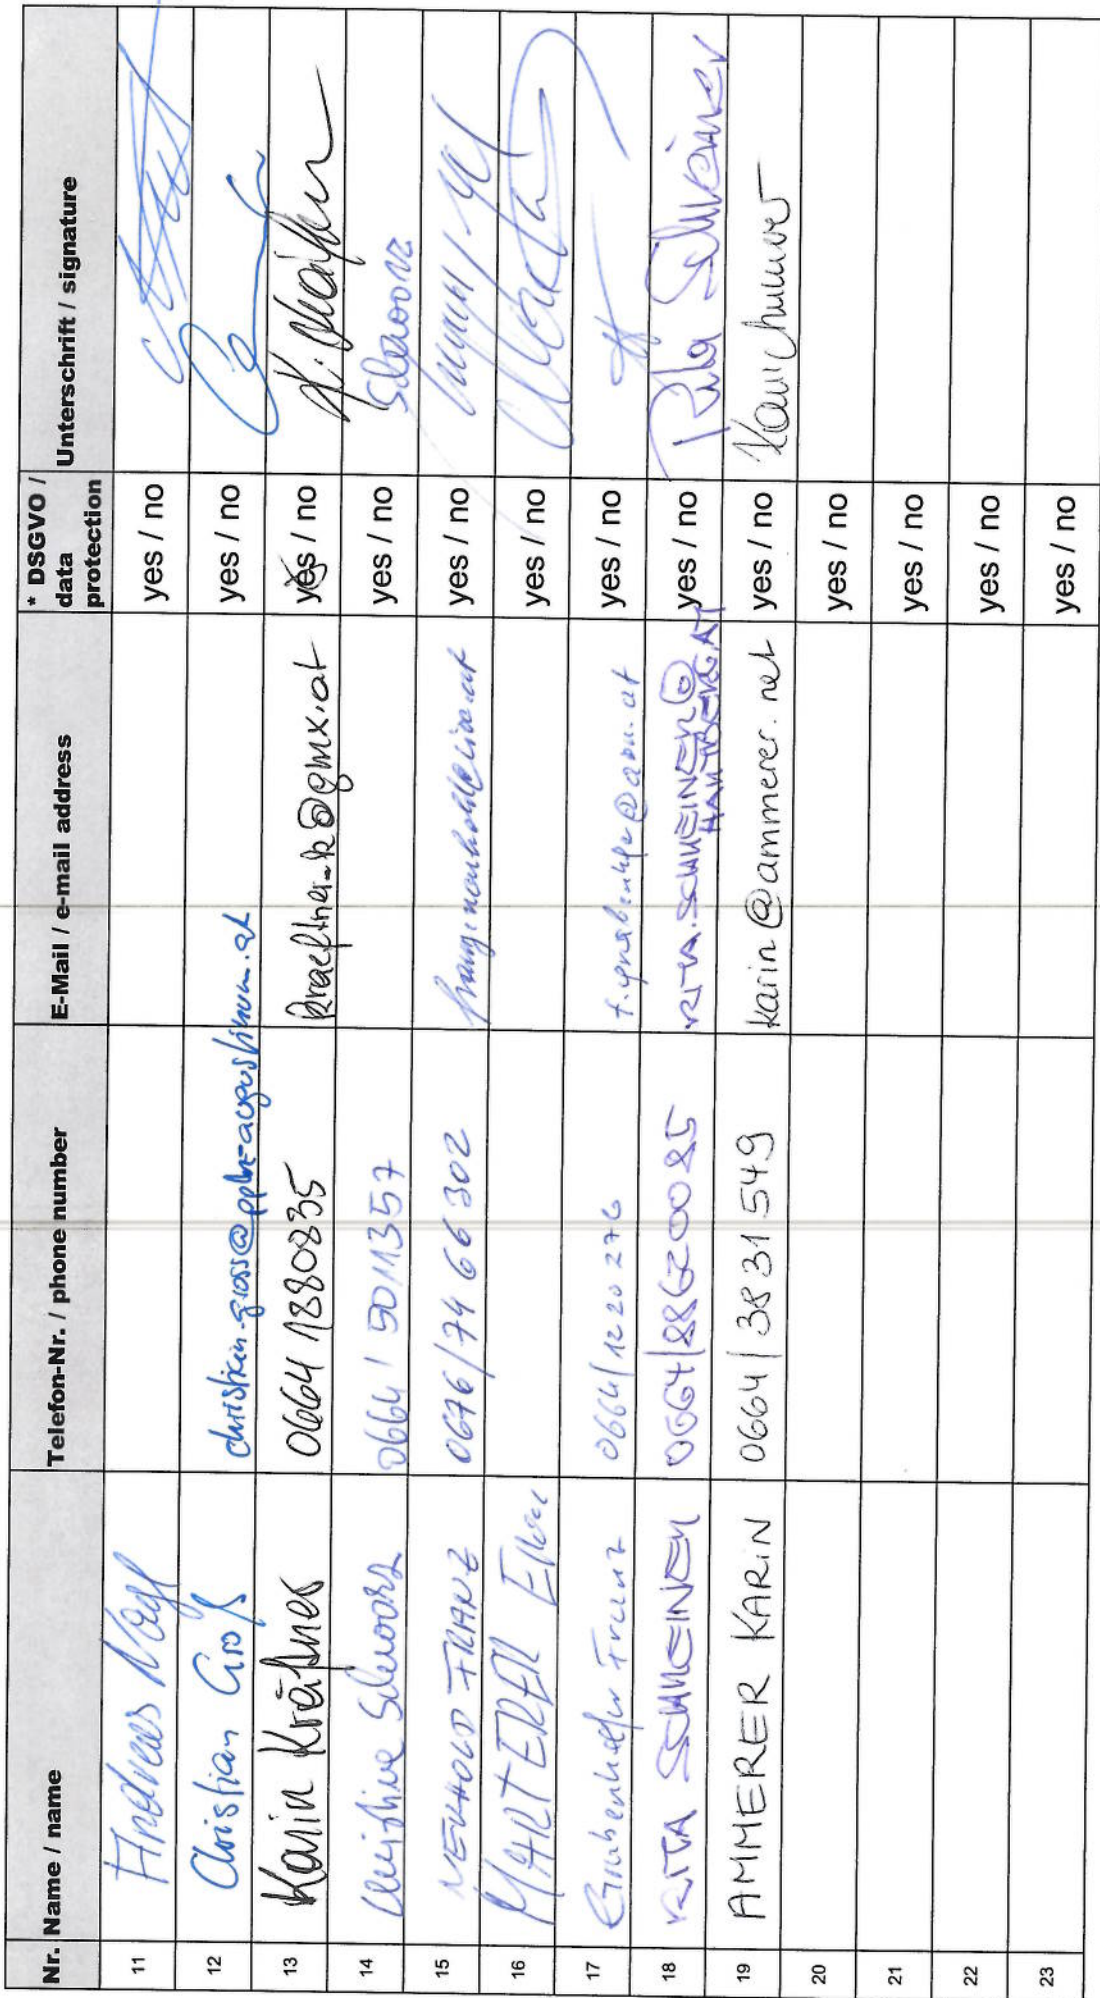 Nr. Name / name Telefon-Nr. / phone number E-Mail / e-mail address * DSGVO / data protection Unterschrift / signature
11 Andreas Vogl yes / no
12 Christian Groß yes / no
13 Karin Kräftner 0664 1880835 kraeftner_k@gmx.at yes / no K. Kräftner
14 Christine Schwarz 0664 / 5011357 yes / no Schwarz
15 NEUHOLD FRANZ 0676/74 66 302 yes / no
16 MARTERER yes / no
17 Franz 0664/12 20 276 yes / no
18 RITA SCHREINER 0664/886200 85 RITA.SCHREINER@ yes / no Rita Schreiner
19 AMMERER KARIN 0664 / 3831 549 karin@ammerer.net yes / no Karin Ammerer
20 yes / no
21 yes / no
22 yes / no
23 yes / no